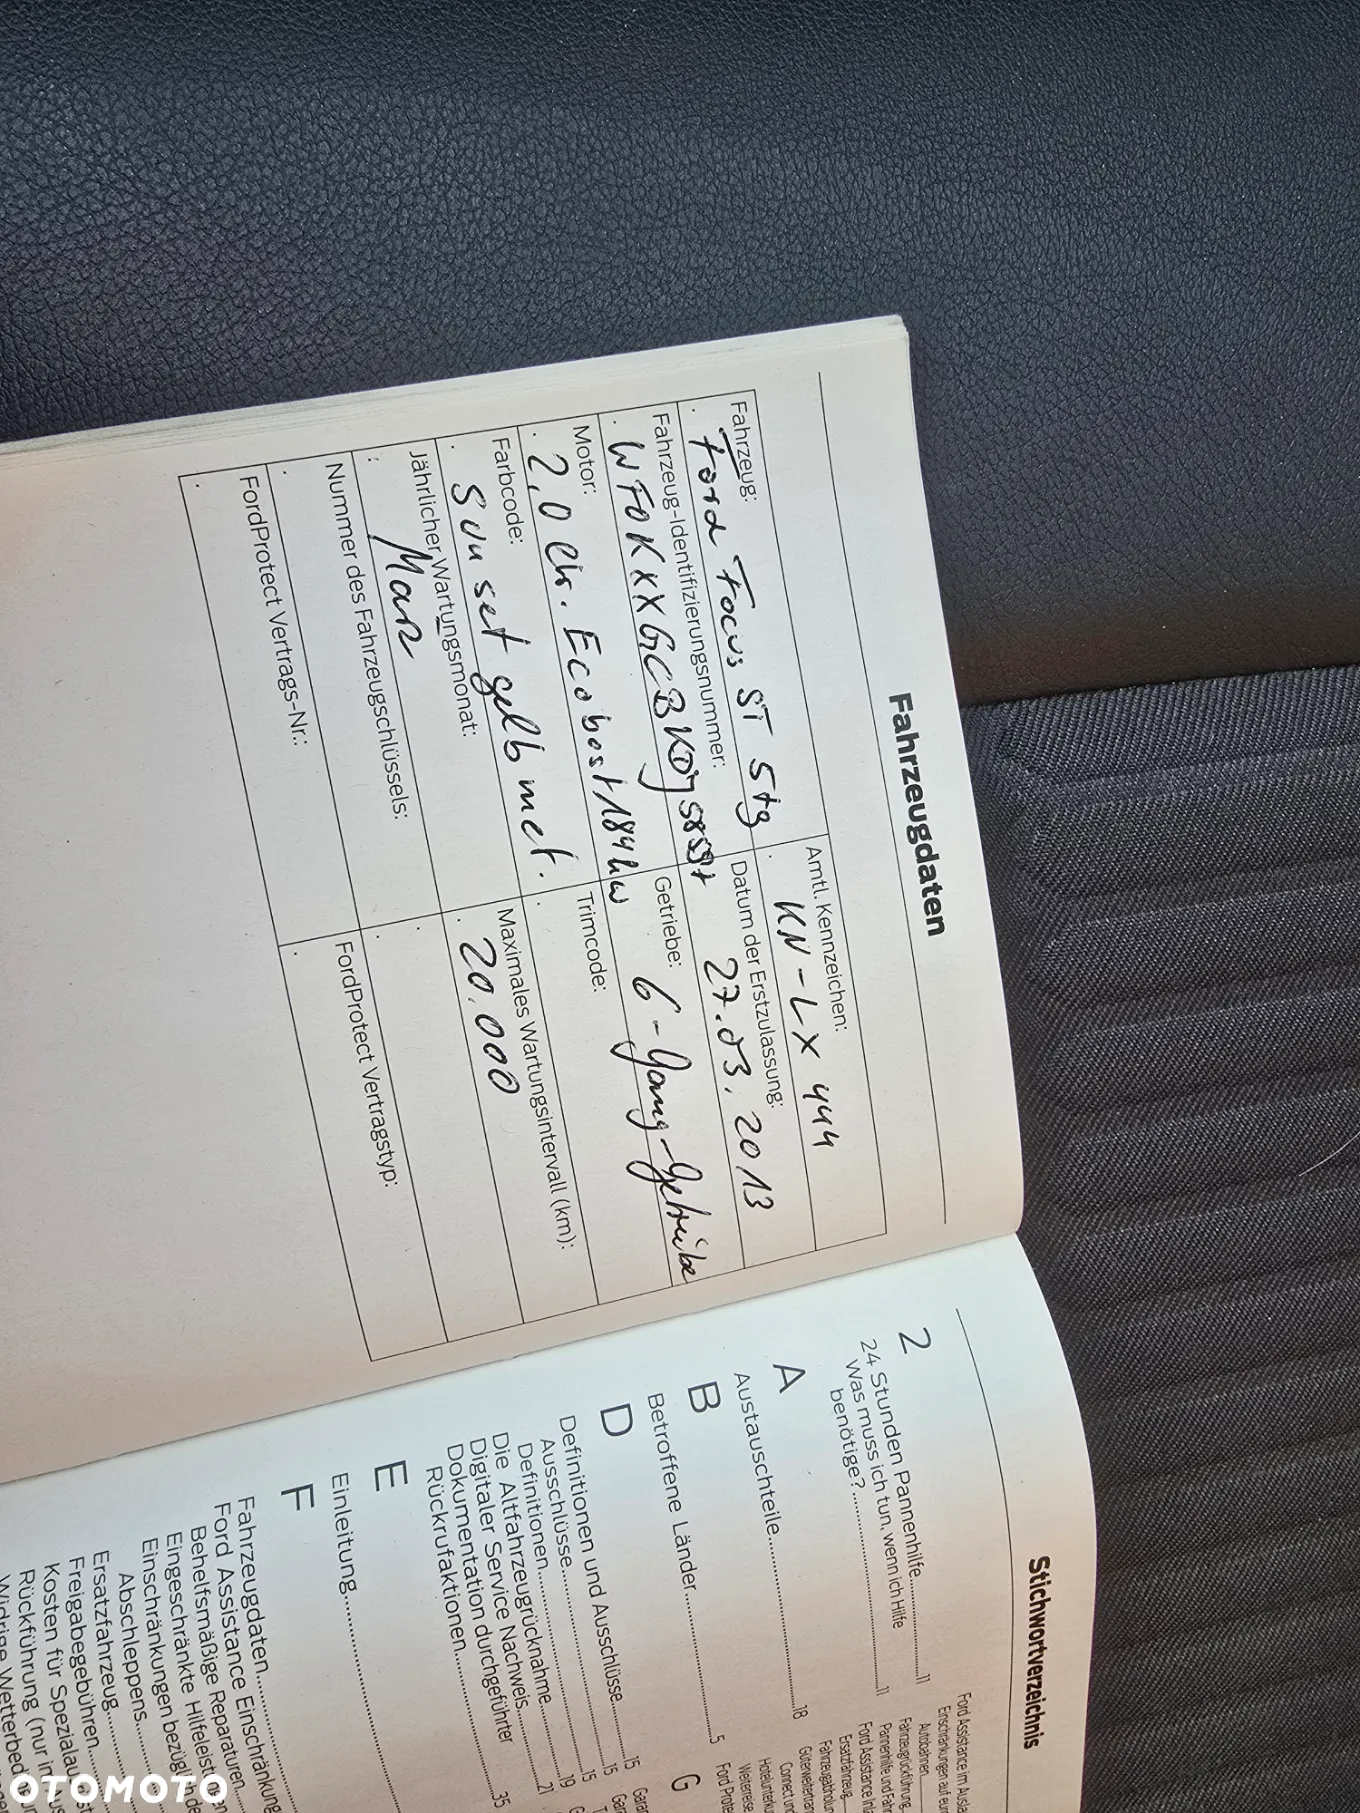 Fahrzeugdaten
Fahrzeug:
Ford Focus ST 5tg
Amtl. Kennzeichen:
KN-LX 444
Fahrzeug-Identifizierungsnummer:
Datum der Erstzulassung:
27.03.2013
Motor:
2,0 ltr. Ecobost 184kw
Getriebe:
6-Gang-Getriebe
Farbcode:
Sunset gelb met.
Trimcode:
Jährlicher Wartungsmonat:
März
Maximales Wartungsintervall (km):
20.000
Nummer des Fahrzeugschlüssels:
FordProtect Vertrags-Nr.:
FordProtect Vertragstyp:
Stichwortverzeichnis
2
24 Stunden Pannenhilfe..........11
Was muss ich tun, wenn ich Hilfe
benötige?..........11
A
Austauschteile..........18
B
Betroffene Länder..........5
D
Definitionen und Ausschlüsse..........15
Ausschlüsse..........15
Definitionen..........15
Die Altfahrzeugrücknahme..........19
Digitaler Service Nachweis..........21
Dokumentation durchgeführter
Rückrufaktionen..........35
E
Einleitung..........
F
Fahrzeugdaten..........
Ford Assistance Einschränkung
Behelfsmäßige Reparaturen
Eingeschränkte Hilfeleistungen
Einschränkungen bezüglich de
Abschleppens
Ersatzfahrzeug
Freigabegebühren
Kosten für Spezialau
Rückführung (nur in
Widrige Wetterbed
Ford Assistance im Ausla
Einschränkungen auf eur
Autobahnen
Fahrzeugrückführung
Pannenhilfe und Fahr
Ford Assistance Inla
Ersatzfahrzeug
Fahrzeugabholung
Güterweitertran
Hotelunterku
Weiterreise
Ford Prote
G
OTOMOTO